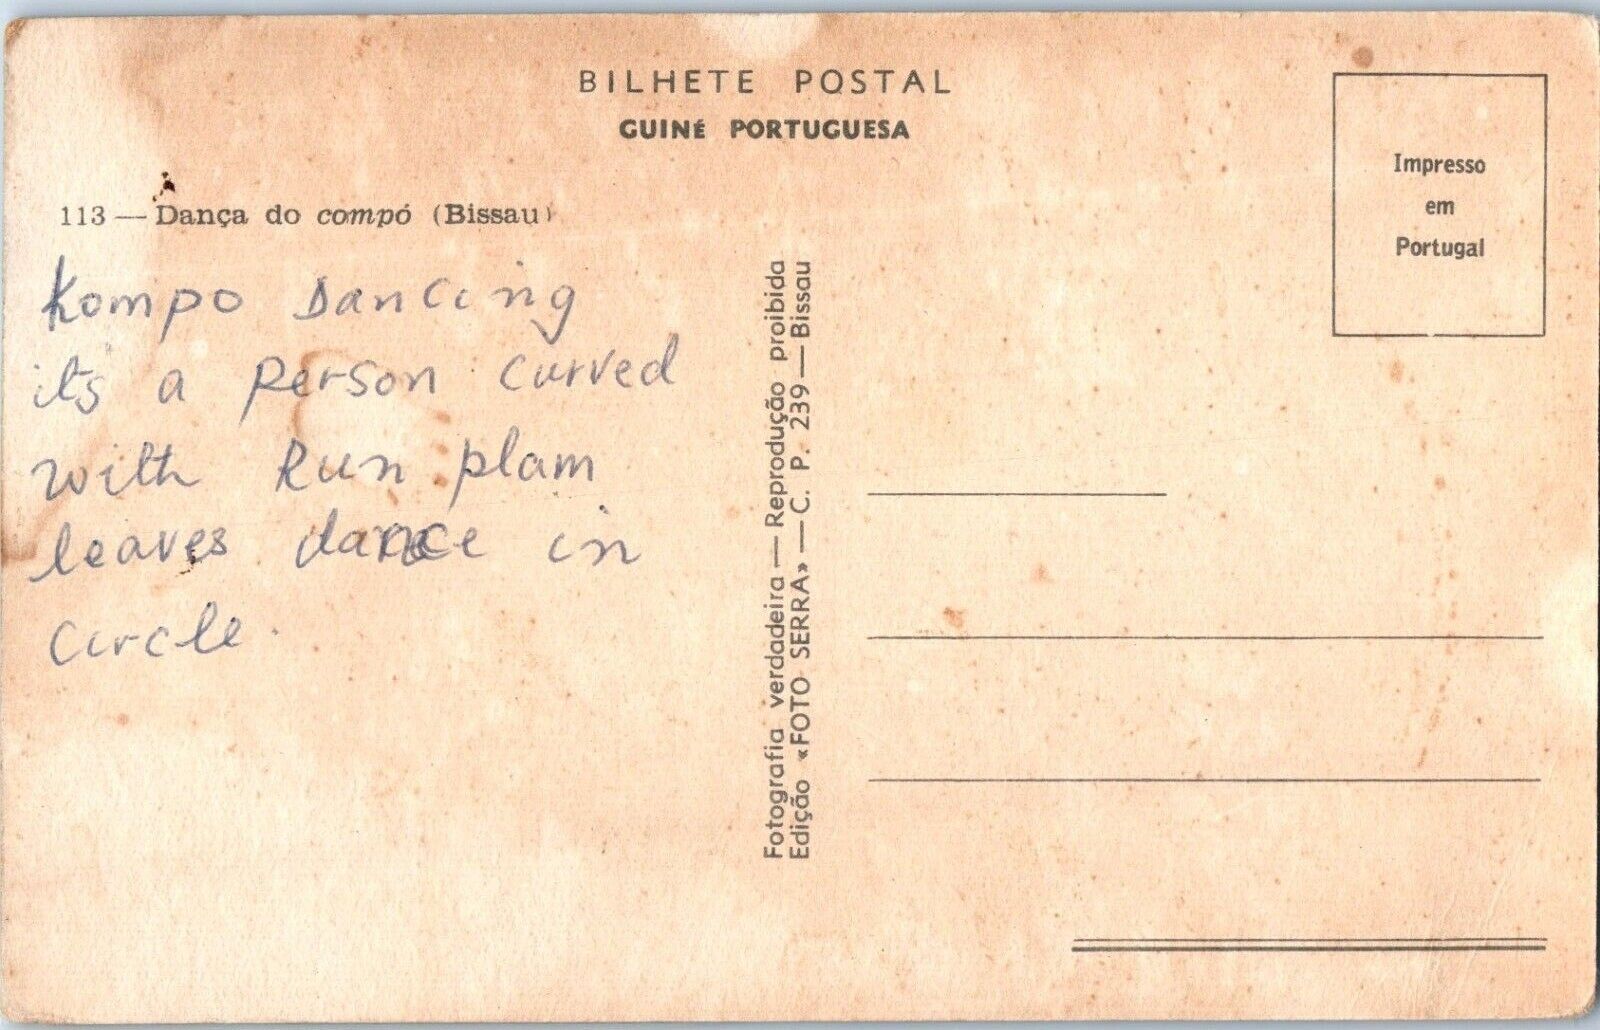 BILHETE POSTAL
GUINÉ PORTUGUESA
Impresso
em
Portugal
113 — Dança do compó (Bissau)
Kompo Dancing
its a person curved
with Run plam
leaves dance in
circle.
Fotografia verdadeira — Reprodução proibida
Edição «FOTO SERRA» — C. P. 239 — Bissau